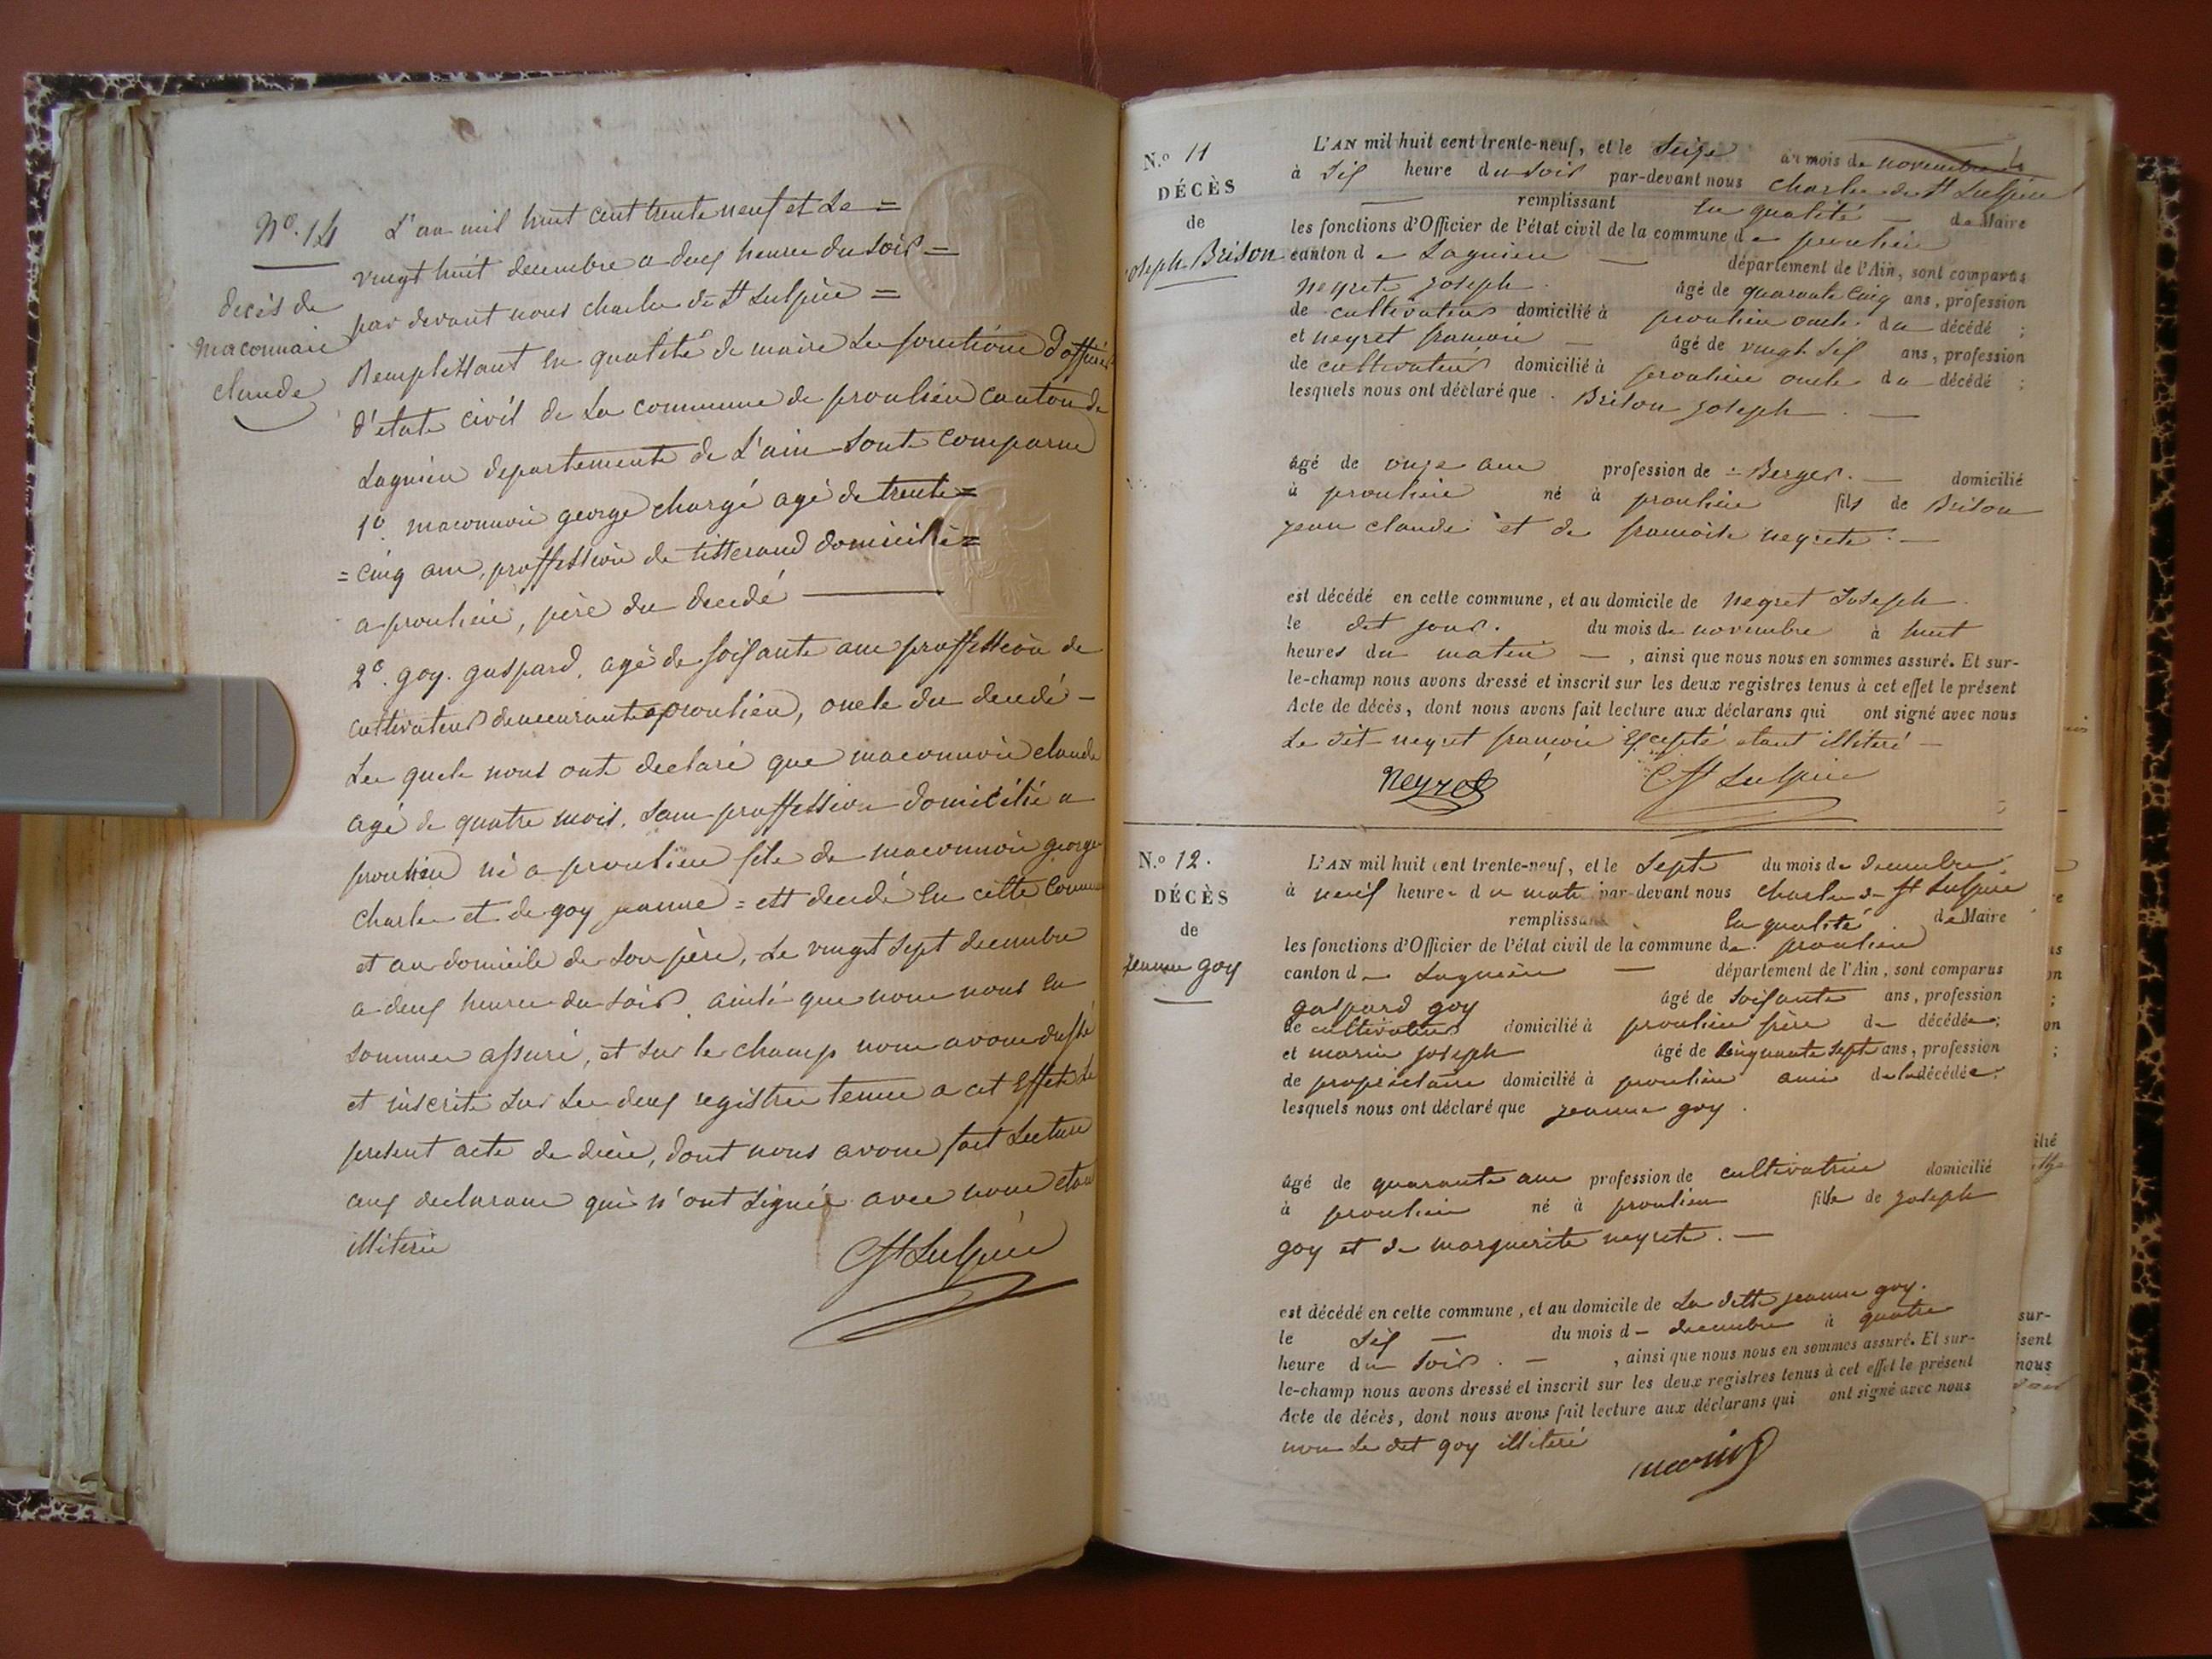 N.o 14
decès de
maconnair
claude
L'an mil huit cent trente neuf et Le =
vingt huit decembre a deux heures du soir =
par devant nous charles de St Sulpice =
Remplissant en qualité de maire Les fonctions d'officier
d'etat civil de La commune de proulieu canton de
Lagnieu departement de L'ain sont comparus
1o. maconnoir george chargé agé de trente =
= cinq ans, proffession de tisserand domicilié =
a proulieu, père du decedé
2o. goy gaspard, agé de soixante ans proffession de
cultivateur demeurant a proulieu, oncle du decedé -
Les quels nous ont declaré que maconnoir claude
agé de quatre mois, sans proffession domicilié a
proulieu né a proulieu fils de maconnoir george
charles et de goy jeanne = est decedé en cette commune
et au domicile de son père, Le vingt sept decembre
a deux heures du soir ainsi que nous nous en
sommes assuré, et sur le champ nous avons dressé
et inscrit sur Les deux registres tenus a cet Effet Le
present acte de décès, dont nous avons fait Lecture
aux declarans qui n'ont signés avec nous etant
illiterés
C St Sulpice
N.o 11
DÉCÈS
de
Joseph Brison
L'AN mil huit cent trente-neuf, et le seize du mois de novembre
à six heure du soir par-devant nous charles de St Sulpice
remplissant en qualité de Maire
les fonctions d'Officier de l'état civil de la commune de proulieu
canton de Lagnieu département de l'Ain, sont comparus
neyret joseph âgé de quarante cinq ans, profession
de cultivateur domicilié à proulieu oncle du décédé ;
et neyret francois âgé de vingt six ans, profession
de cultivateur domicilié à proulieu oncle du décédé ;
lesquels nous ont déclaré que Brison joseph
âgé de onze ans profession de Berger domicilié
à proulieu né à proulieu fils de Brison
jean claude et de francoise neyrete
est décédé en cette commune, et au domicile de neyret Joseph
le dit jour du mois de novembre à huit
heures du matin , ainsi que nous nous en sommes assuré. Et sur-
le-champ nous avons dressé et inscrit sur les deux registres tenus à cet effet le présent
Acte de décès, dont nous avons fait lecture aux déclarans qui ont signé avec nous
Le dit neyret françois Excepté etant illiteré
Neyret C St Sulpice
N.o 12.
DÉCÈS
de
jeanne goy
L'AN mil huit cent trente-neuf, et le Sept du mois de decembre
à neuf heures du matin par-devant nous charles de St Sulpice
remplissant en qualité de Maire
les fonctions d'Officier de l'état civil de la commune de proulieu
canton de Lagnieu département de l'Ain, sont comparus
gaspard goy âgé de soixante ans, profession
de cultivateur domicilié à proulieu frère de décédée ;
et marin joseph âgé de cinquante sept ans, profession
de propriétaire domicilié à proulieu ami de la décédée ;
lesquels nous ont déclaré que jeanne goy
âgé de quarante ans profession de cultivatrice domicilié
à proulieu né à proulieu fille de joseph
goy et de marguerite neyrete.
est décédé en cette commune, et au domicile de La ditte jeanne goy.
le Six du mois de decembre à quatre
heure du soir. , ainsi que nous nous en sommes assuré. Et sur-
le-champ nous avons dressé et inscrit sur les deux registres tenus à cet effet le présent
Acte de décès, dont nous avons fait lecture aux déclarans qui ont signé avec nous
non Le dit goy illiteré
marin